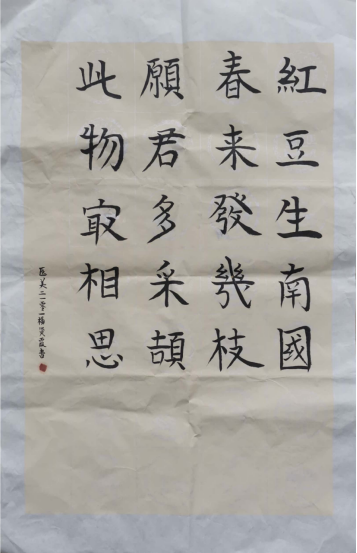 紅豆生南國
春来發幾枝
願君多采頡
此物寂相思